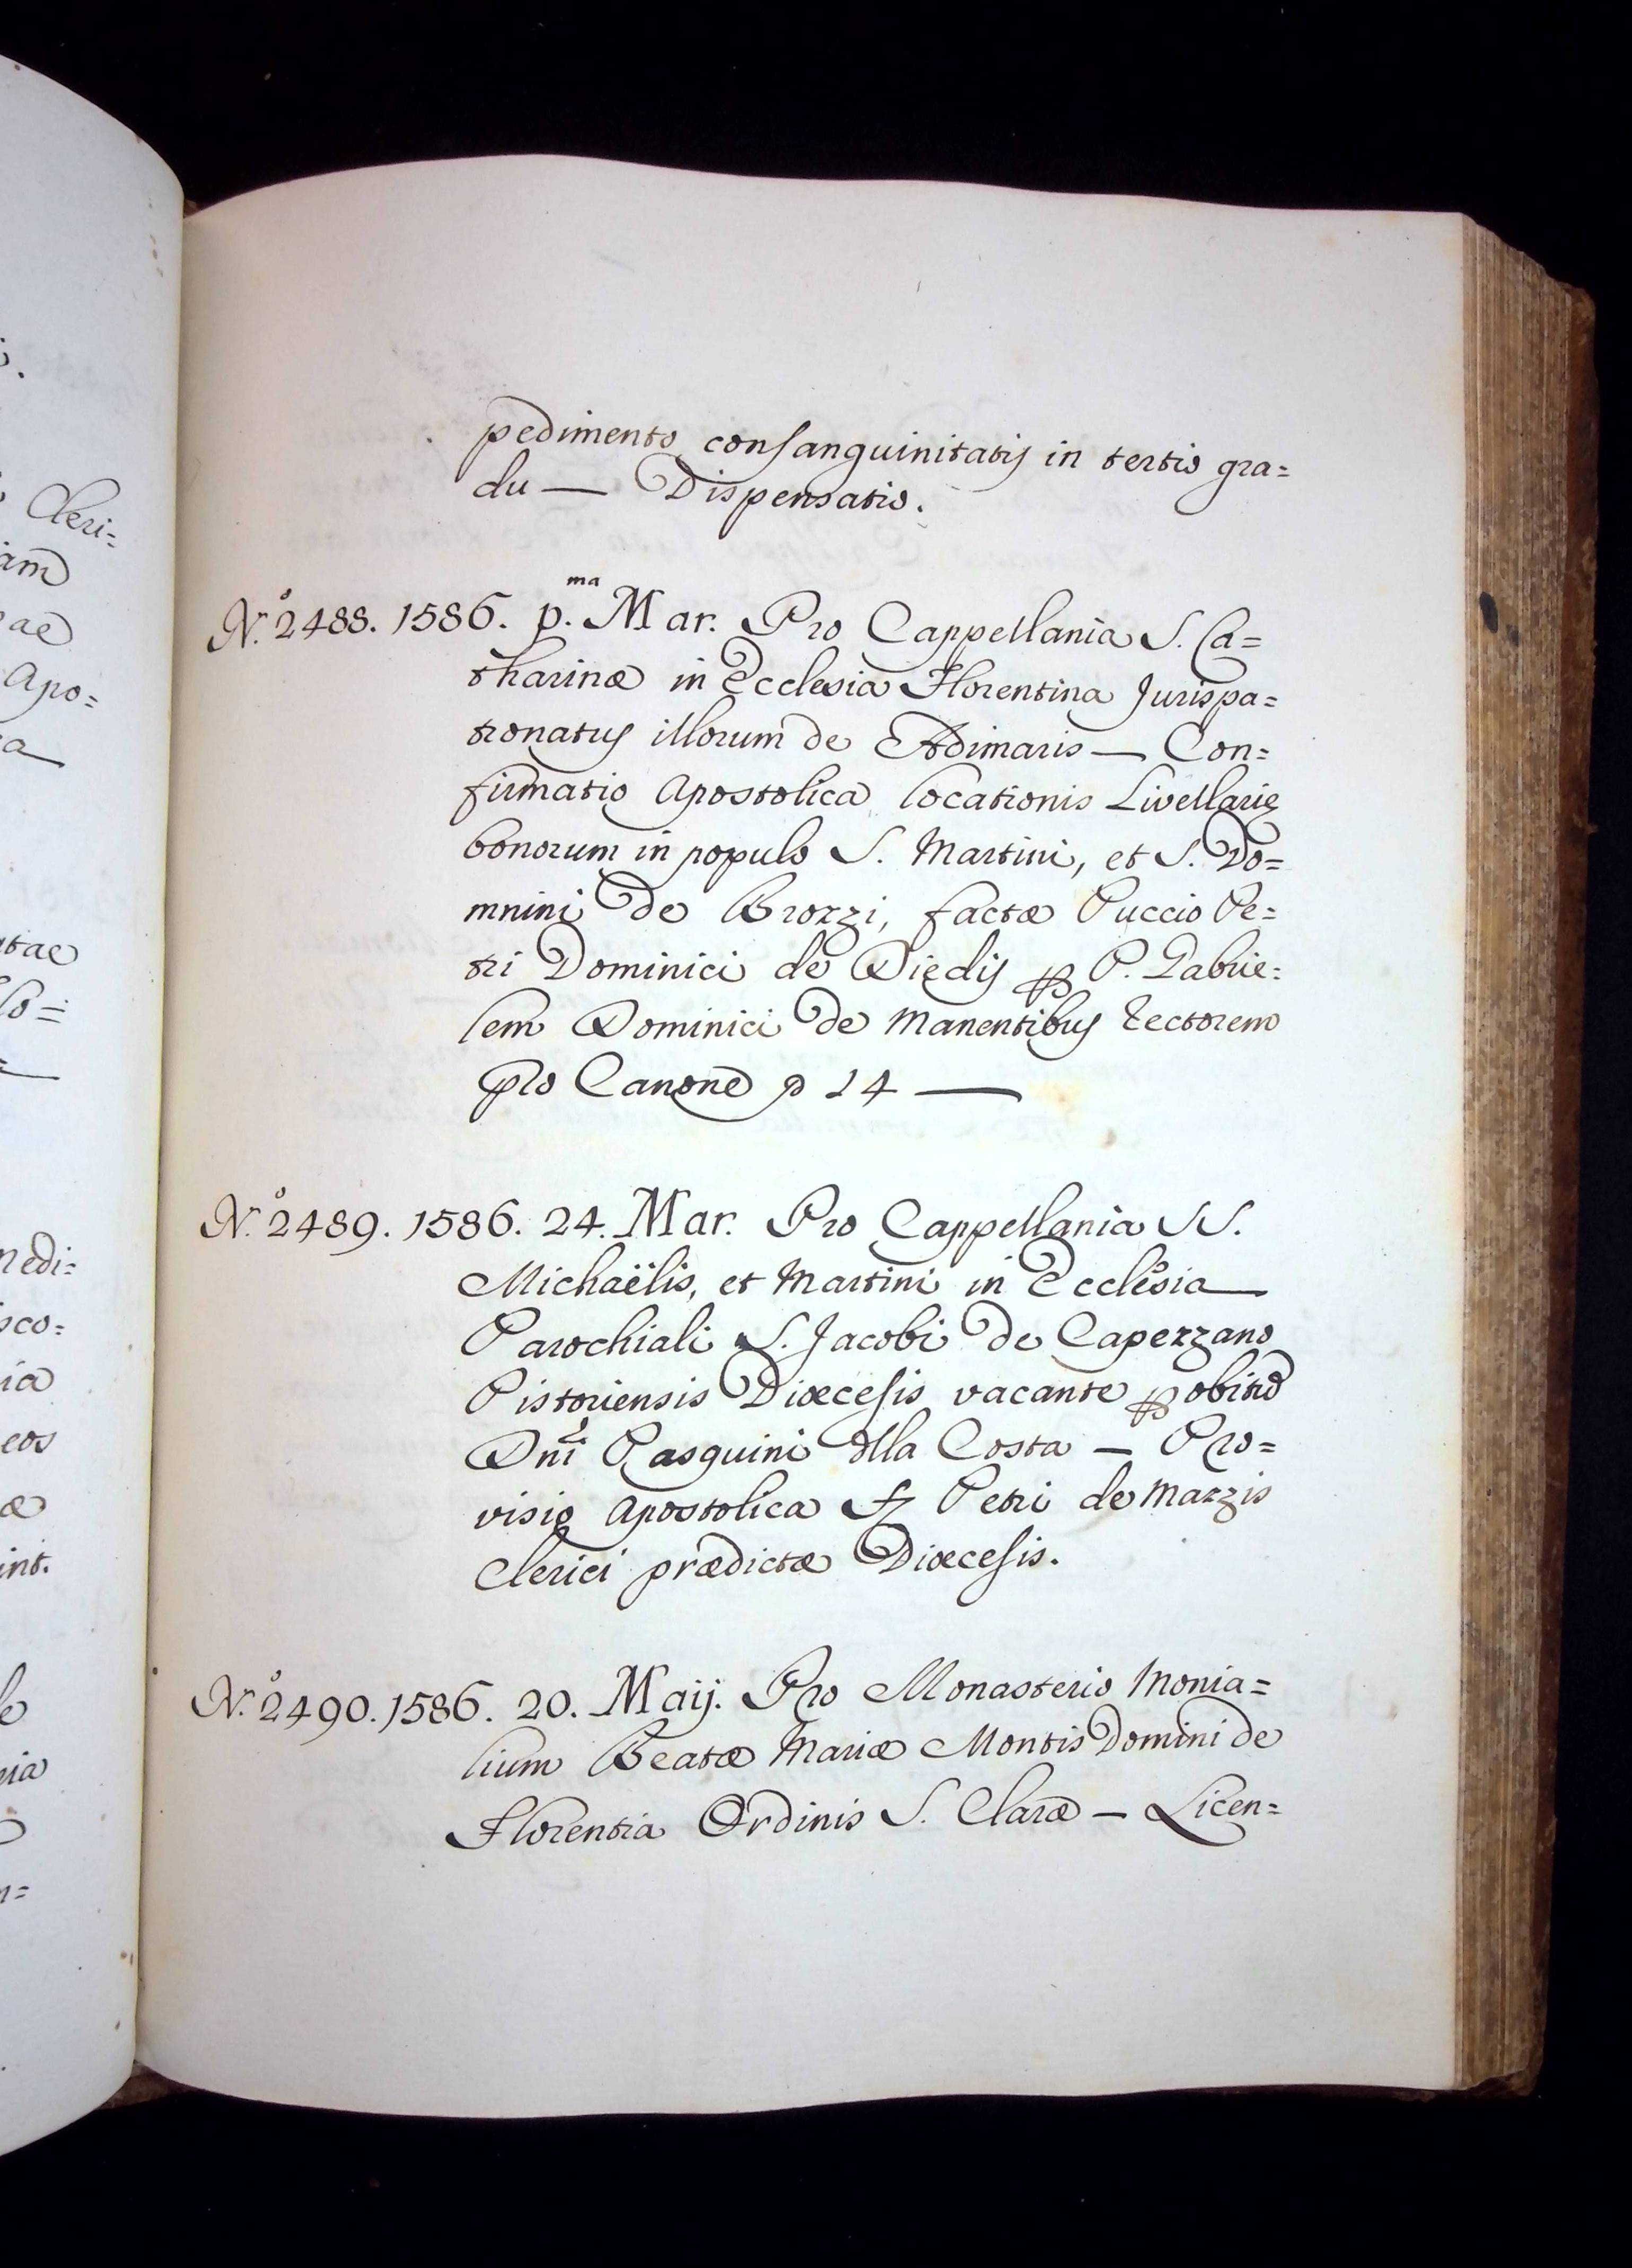 i.
Cleri=
am
ae
Apo=
a
tae
lo=
nedi=
sco=
ia
eos
æ
int.
le
ria
n=
pedimento consanguinitatis in tertio gra=
du — Dispensatio.
N.º 2488. 1586. p.ma Mar. Pro Cappellania S. Ca=
tharinæ in Ecclesia Florentina Jurispa=
tronatus illorum de Adimaris — Con=
firmatio Apostolica locationis Livellarię
bonorum in populo S. Martini, et S. Do=
mnini de Brozzi, factæ Puccio Pe=
tri Dominici de Diędis p P. Gabrie=
lem Dominici de Manentibus Rectorem
pro Canone 14 —
N.º 2489. 1586. 24. Mar. Pro Cappellania SS.
Michaëlis, et Martini in Ecclesia
Parochiali S. Jacobi de Capezzano
Pistoriensis Diœcesis vacante p obitũ
Dni Pasquini dlla Costa — Pro=
visio Apostolica Petri de Mazzis
Clerici prædictæ Diœcesis.
N.º 2490. 1586. 20. Maij. Pro Monasterio Monia=
lium Beatæ Mariæ Montis Domini de
Florentia Ordinis S. Claræ — Licen=